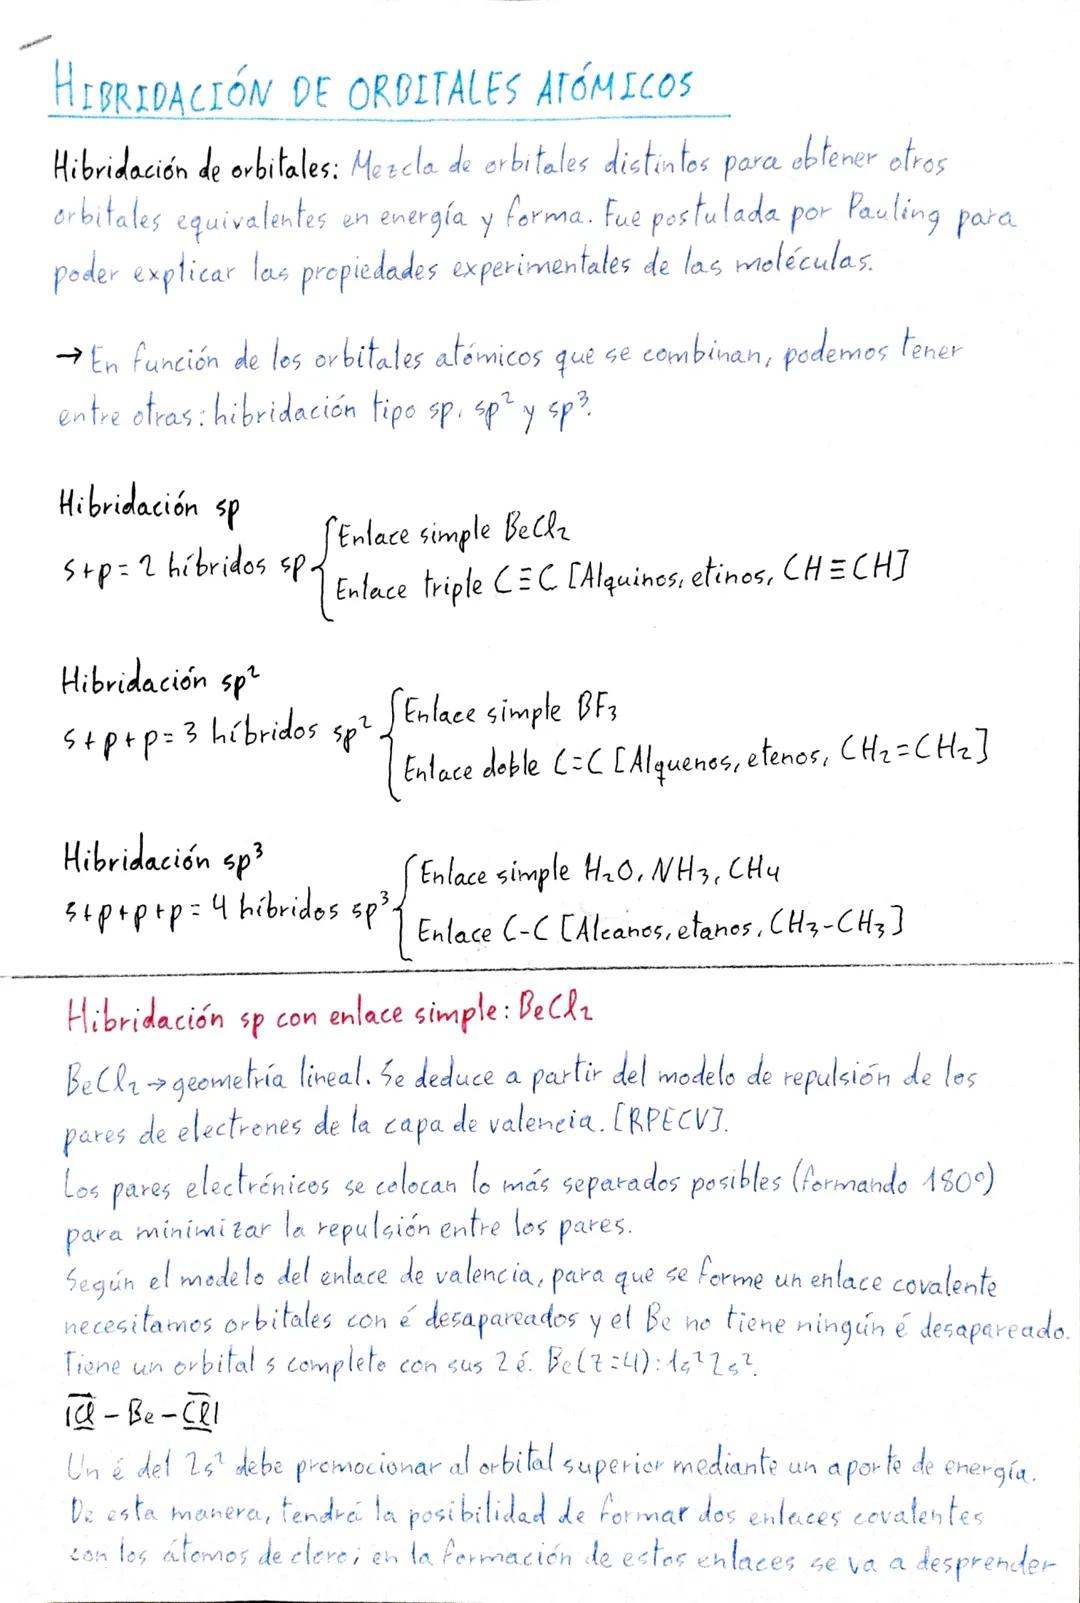 HIBRIDACIÓN DE ORBITALES ATÓMICOS
Hibridación de orbitales: Mezcla de orbitales distintos para obtener otros
orbitales equivalentes en energía y forma. Fue postulada por Pauling para
poder explicar las propiedades experimentales de las moléculas.
→ En función de los orbitales atómicos que se combinan, podemos tener
entre otras: hibridación tipo sp, sp² y sp³.
Hibridación sp
s+p = 2 híbridos sp
Enlace simple BeCl₂
Enlace triple C≡C [Alquinos, etinos, CH≡CH]
Hibridación sp²
s+p+p = 3 híbridos sp²
Enlace simple BF₃
Enlace doble C=C [Alquenos, etenos, CH₂=CH₂]
Hibridación sp³
s+p+p+p = 4 híbridos sp³
Enlace simple H₂O, NH₃, CH₄
Enlace C-C [Alcanos, etanos, CH₃-CH₃]
Hibridación sp con enlace simple: BeCl₂
BeCl₂ → geometría lineal. Se deduce a partir del modelo de repulsión de los
pares de electrones de la capa de valencia. [RPECV].
Los pares electrónicos se colocan lo más separados posibles (formando 180º)
para minimizar la repulsión entre los pares.
Según el modelo del enlace de valencia, para que se forme un enlace covalente
necesitamos orbitales con é desapareados y el Be no tiene ningún é desapareado.
Tiene un orbital s completo con sus 2 é. Be(Z=4): 1s² 2s².
|Cl - Be - Cl|
Un é del 2s² debe promocionar al orbital superior mediante un aporte de energía.
De esta manera, tendrá la posibilidad de formar dos enlaces covalentes
con los átomos de cloro; en la formación de estos enlaces se va a desprender